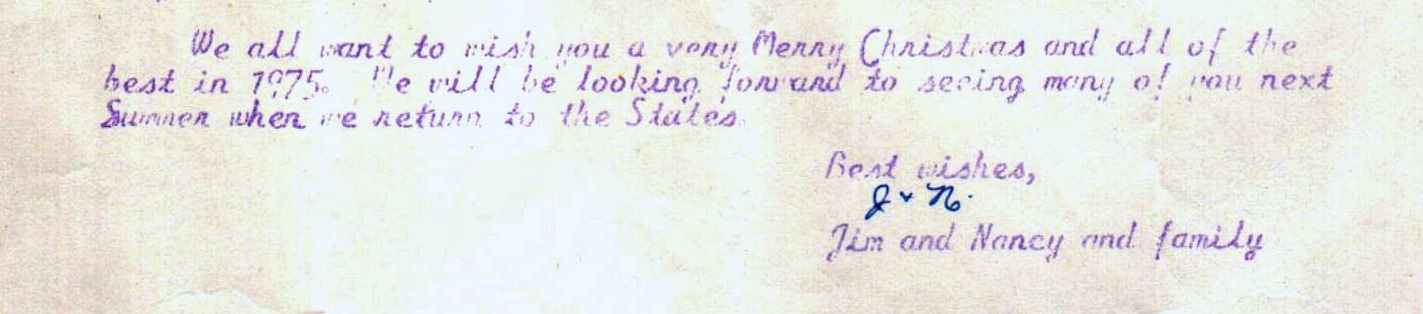 We all want to wish you a very Merry Christmas and all of the
best in 1975. We will be looking forward to seeing many of you next
Summer when we return to the States.
Best wishes,
J & N.
Jim and Nancy and family